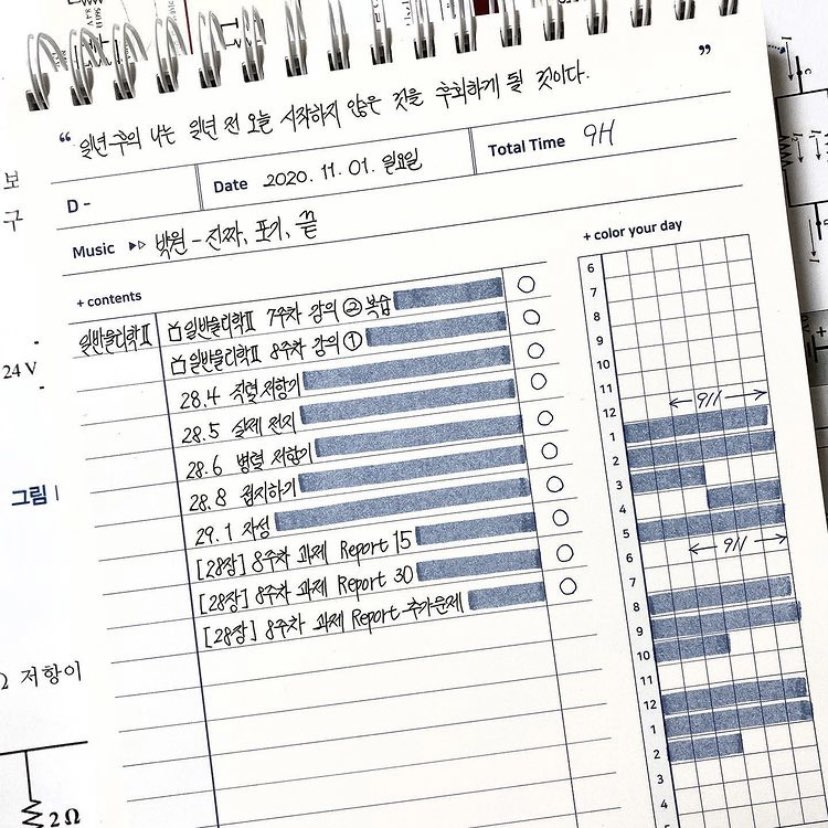 560Ω
8.4 V
“ 일년후의 나는 일년 전 오늘 시작하지 않은 것을 후회하게 될 것이다. ”
D -
Date 2020. 11. 01. 일요일
Total Time 9H
Music ▶▷ 박원 - 진짜, 포기, 끝
+ contents
일반물리학Ⅱ
일반물리학Ⅱ 7주차 강의 ② 복습
일반물리학Ⅱ 8주차 강의 ①
28.4 직렬 저항기
28.5 실제 전지
28.6 병렬 저항기
28.8 접지하기
29.1 자성
[28장] 8주차 과제 Report 15
[28장] 8주차 과제 Report 30
[28장] 8주차 과제 Report 추가문제
+ color your day
6
7
8
9
10
11
12
← 9H →
1
2
3
4
5
← 9H →
6
7
8
9
10
11
12
1
2
3
4
5
보
구
24 V
그림
Ω 저항이
2 Ω